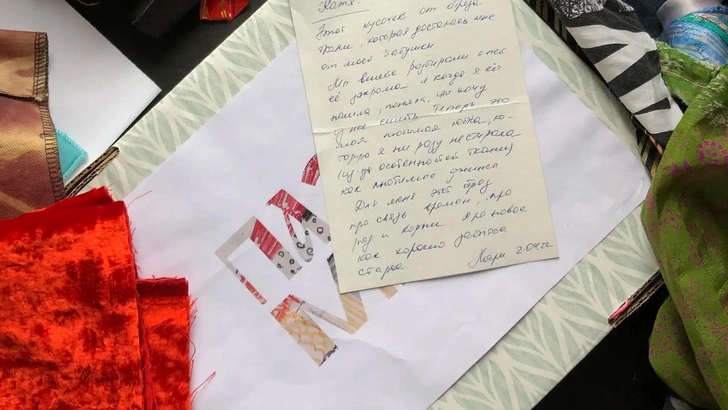 Катя.
Этот кусочек от отреза
ткани, которая досталась мне
от моей бабушки
Мы вместе разбирали с ней
её закрома и когда я её
нашла, поняла, что хочу
из неё сшить Теперь это
моя любимая юбка, ко-
торую я ни разу не стирала
(из-за особенностей ткани)
как любимые джинсы
Для меня этот
про связь времен, про
род и корни. Про новое
как хорошо забытое
старое.